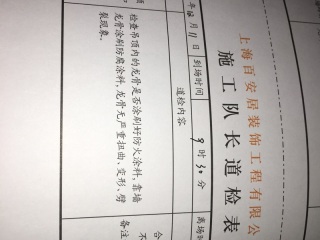 上海百安居装饰工程有限公
施工队长道检表
年 月 11 日 到场时间 9 时 30 分 离场时
道检内容
合
不
检查吊顶内的龙骨是否涂刷好防火涂料,靠墙
龙骨涂刷防腐涂料,龙骨无严重扭曲、变形、劈
裂现象。
备注